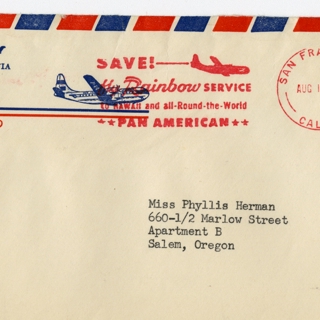 SAVE!
Fly Rainbow SERVICE
to HAWAII and all-Round-the-World
★★PAN AMERICAN★★
SAN FRA
AUG 1
CAL
Miss Phyllis Herman
660-1/2 Marlow Street
Apartment B
Salem, Oregon